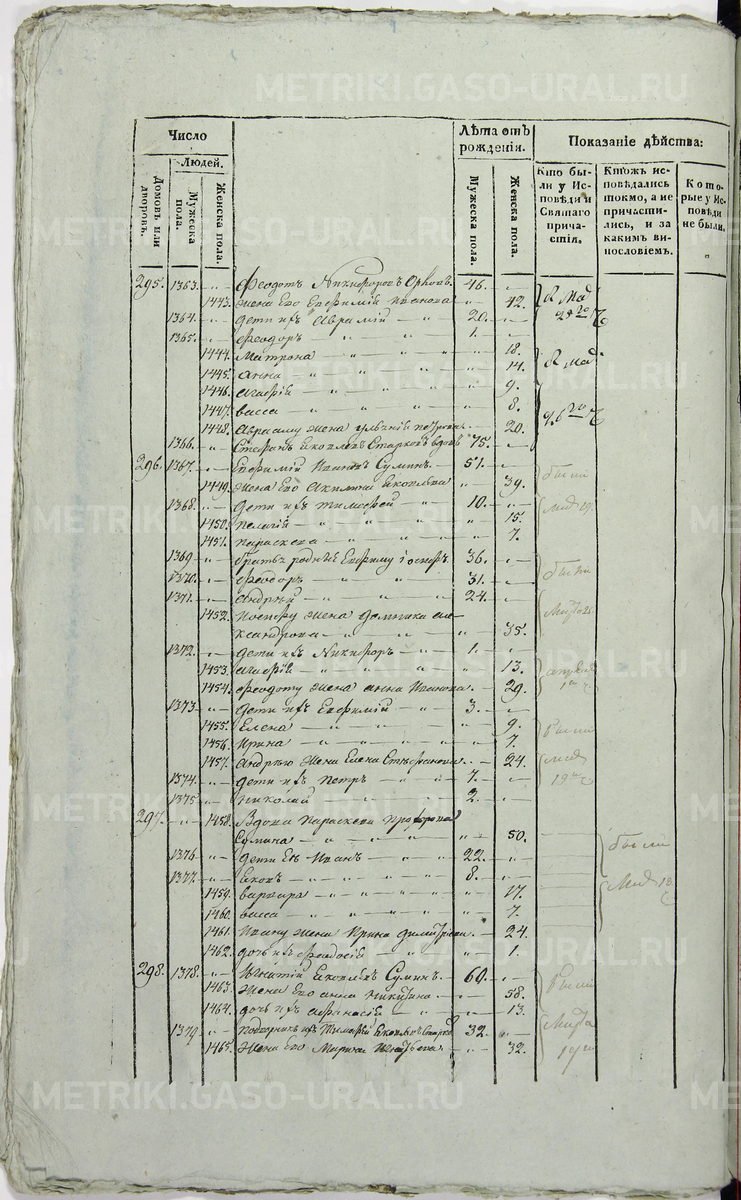 METRIKI.GASO-URAL.RU
Число
Лѣта отъ рожденія.
Показаніе дѣйства:
Людей.
Домовъ или дворовъ.
Мужеска пола.
Женска пола.
Мужеска пола.
Женска пола.
Кто были у Исповѣди и Святаго причастія.
Ктожъ исповѣдались токмо, а не причастились, и за какимъ винословіемъ.
Которые у Исповѣди не были.
295. 1363. Феодотъ Никифоровъ 46.
1443. жена Его Евфимія Иванова 42.
1364. дети ихъ Аврамій 20.
1365. Феодоръ 1.
1444. Матрона 18.
1445. Анна 14.
1446. Агафія 9.
1447. Васса 8.
1448. Аврааму жена 20.
1366. Стефанъ Яковлевъ Старковъ вдовъ 75.
296. 1367. Евфимій Ивановъ Суминъ 51.
1449. жена Его Акилина Яковлева 39.
1368. дети ихъ Тимофей 10.
1450. Пелагія 15.
1451. Параскева 7.
1369 братья родные Евфиму Іосифъ 36.
1370. Феодоръ 31.
1371. Андрей 24.
1452. Іосифу жена Домника Але
ксандрова 35.
1372. дети ихъ Никифоръ 1.
1453. Агафія 13.
1454. Феодоту жена Анна Иванова 29.
1373 дети ихъ Евфимій 3.
1455. Елена 9.
1456. Ирина 7.
1457. Андрею жена Елена Стефанова 24.
1374. дети ихъ Петръ 7.
1375 Николай 2.
297. 1458. Вдова Параскева
Сумина 50.
1376 дети Ея Иванъ 22.
1377. Яковъ 8.
1459. Варвара 17.
1460. Васса 7.
1461. Ивану жена Ирина Димитріева 24.
1462. дочь ихъ Феодосія 1.
298. 1378. Игнатій Яковлевъ Суминъ 60.
1463. жена Его Анна Никитина 58.
1464. дочь ихъ Афанасія 13.
1379 подворникъ ихъ Тимофей Яковлевъ 32.
1465. жена Его Марина 32.
были
были
были
были
были